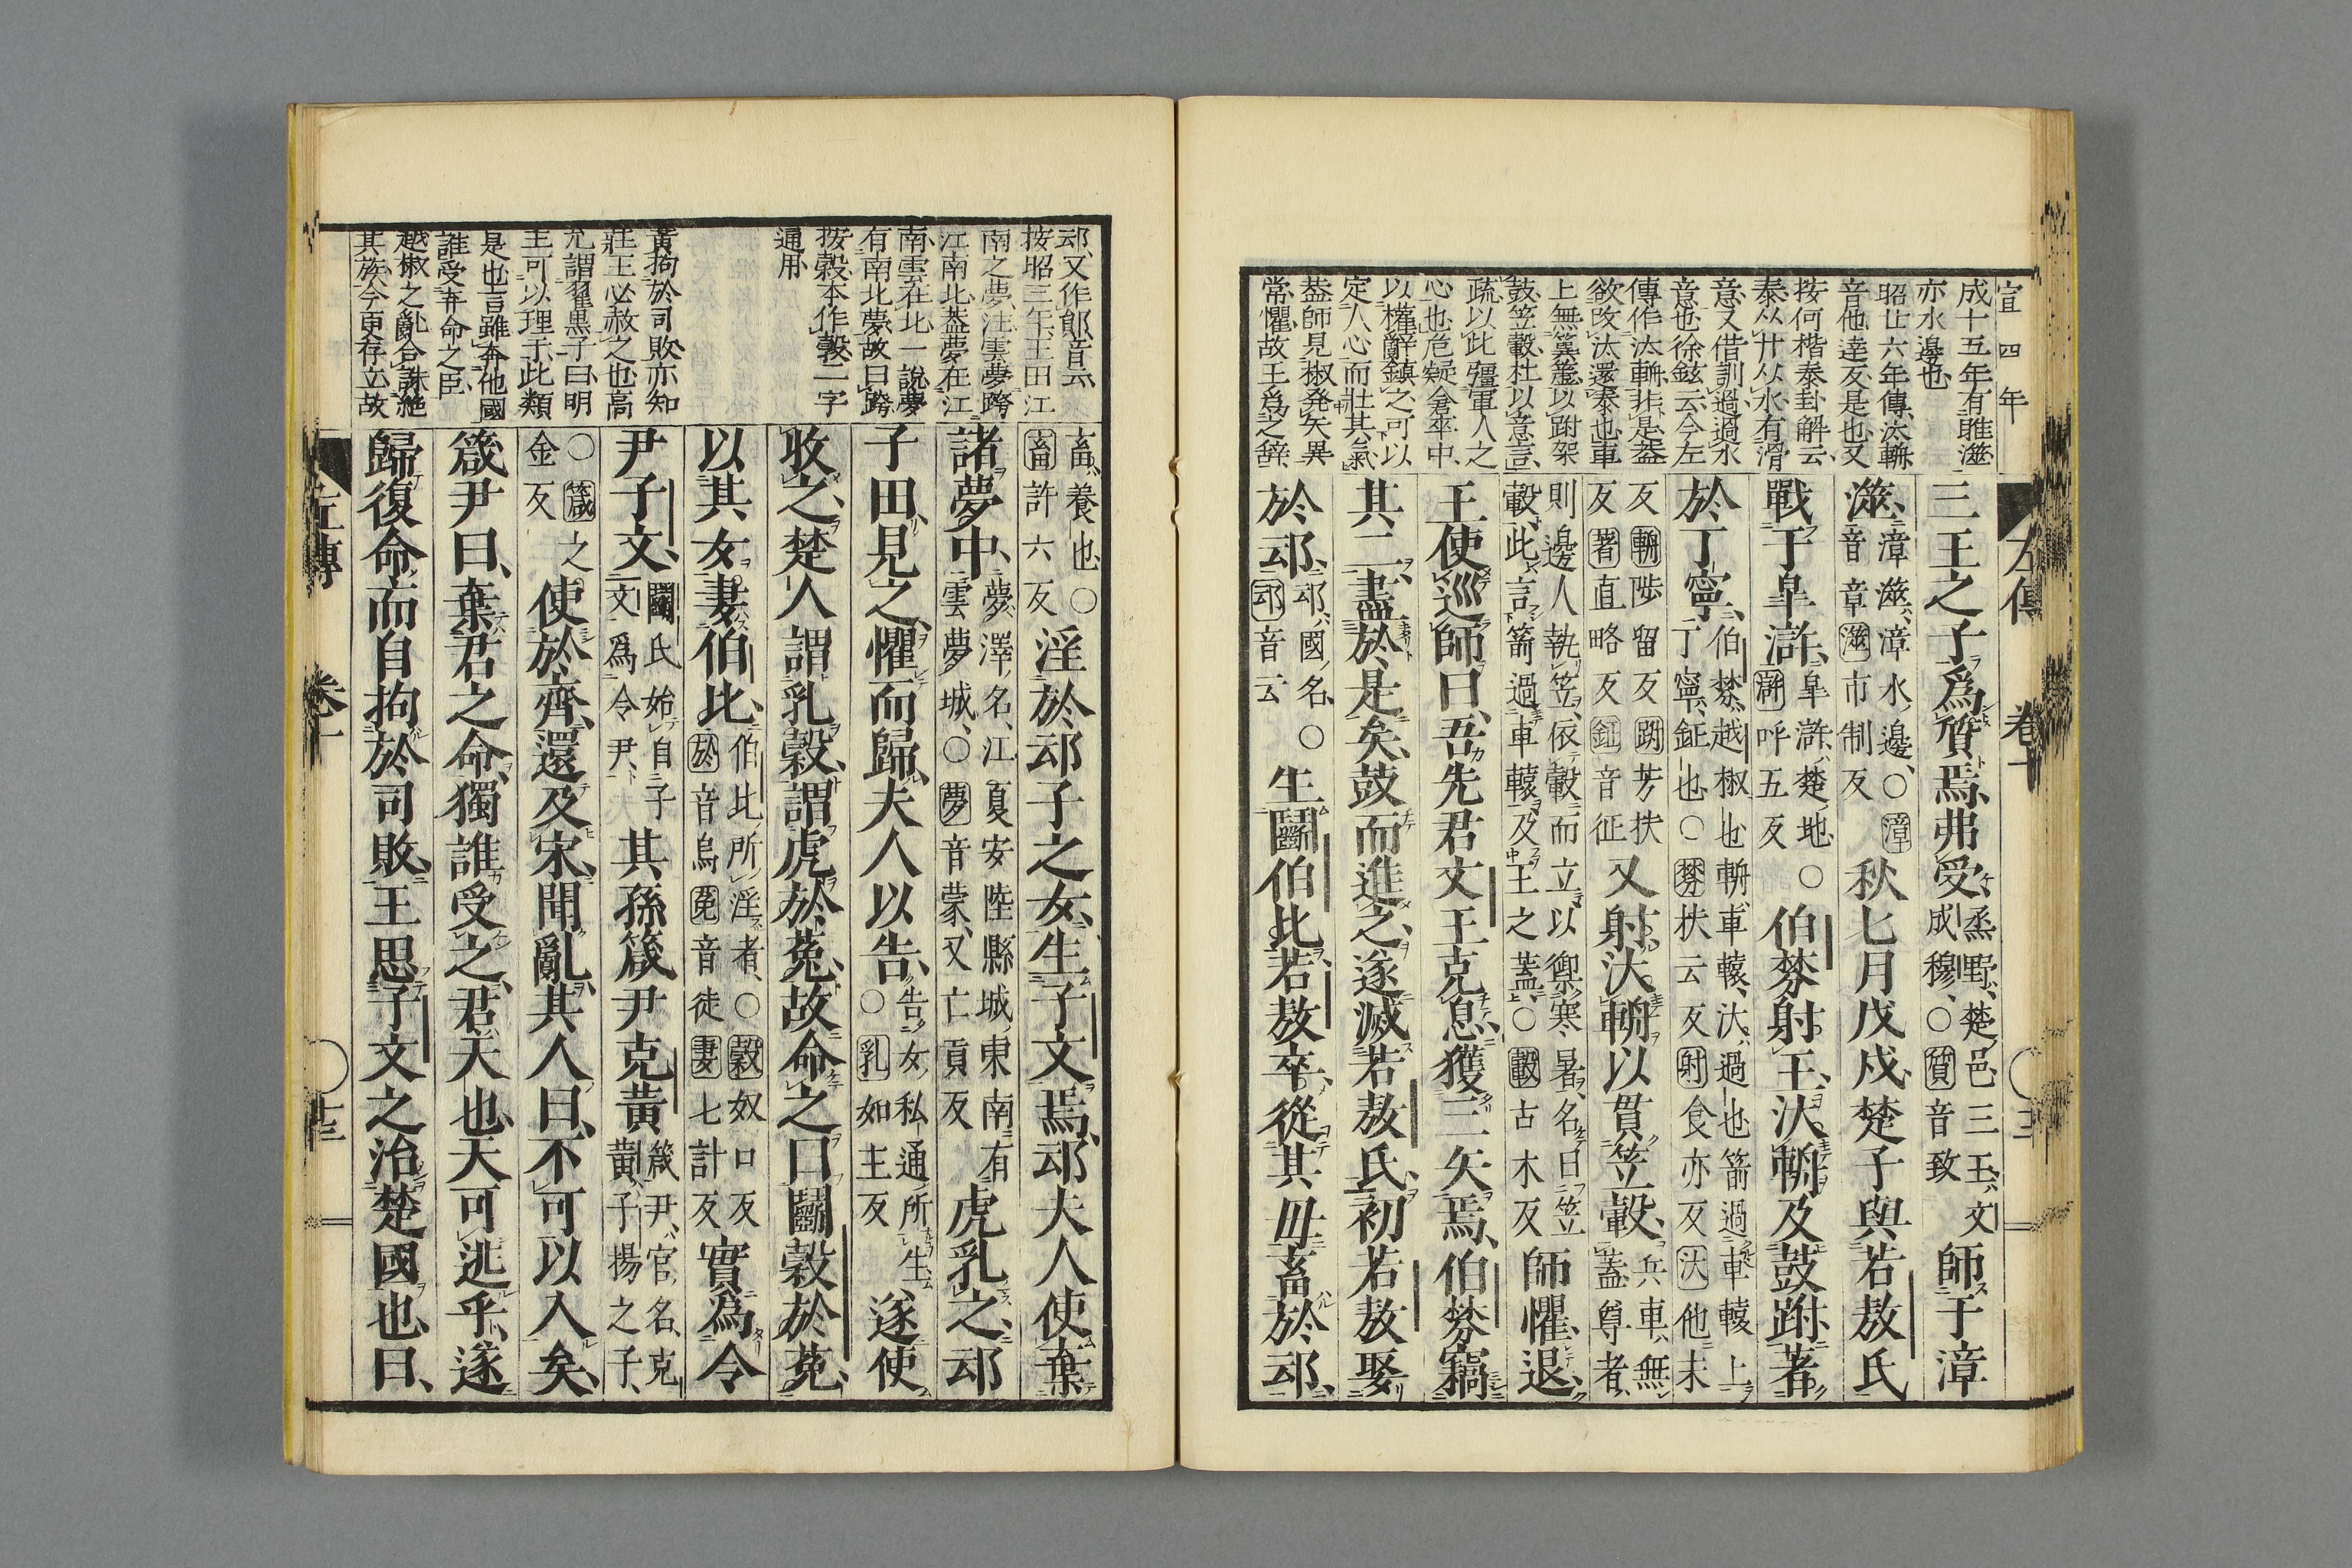 宣四年
成十五年有睢澨
亦水邊也
昭廿六年傳汰輈
音他達反是也又
按何楷泰卦解云
泰从廾从水有滑
意又借訓過過水
意也徐鉉云今左
傳作汰輈非是蓋
欲改汰還泰也車
以跗架
鼓笠轂杜以意言
疏以此彊軍人之
心也危疑倉卒中
以權辭鎮之可以
定人心而壯其氣
蓋師見椒発矢異
常懼故王爲之辭
左傳 卷十
三王之子爲質焉、弗受、烝野、楚邑、三王、文成穆、○質音致 師于漳
澨、漳澨、漳水邊、○漳音章澨市制反 秋七月戊戌、楚子與若敖氏
戰于皐滸、皐滸、楚地、○滸呼五反 伯棼射王、汏輈、及鼓跗、著
於丁寧、伯棼、越椒也輈、車轅、汏、過也箭過車轅上丁寧、鉦也○棼扶云反射食亦反汏他末
反輈陟留反跗芳扶反著直略反鉦音征 又射、汏輈以貫笠轂、兵車、無蓋尊者、
則邊人執笠、依轂而立以禦寒暑、名曰笠轂、此言箭過車轅及王之蓋、○轂古木反 師懼、退、
王使巡師曰、吾先君文王克息、獲三矢焉、伯棼竊
其二、盡於是矣、鼓而進之、遂滅若敖氏、初若敖娶
於䢵、䢵、國名、○䢵音云 生鬬伯比、若敖卒、從其母畜於䢵、
䢵、又作鄖、音云、
按昭三年、王田江
南之夢、注、雲夢跨
江南北、蓋夢在江
南、雲在北、一說、夢
有南北夢、故曰跨
按、榖、本作㝅、二字
通用
黃拘於司敗、亦知
莊王必赦之也、高
允謂翟黒子曰、明
主可以理干、此類
是也、言雖奔他國
誰受弃命之臣
越椒之亂、合誅絶
其族、今更存立、故
畜、養也、○畜許六反 淫於䢵子之女、生子文焉、䢵夫人使棄
諸夢中、夢、澤名、江夏安陸縣城東南有雲夢城、○夢音蒙、又亡貢反 虎乳之、䢵
子田、見之、懼而歸、夫人以告、告女私通所生、○乳如主反 遂使
收之、楚人謂乳穀、謂虎於菟、故命之曰鬬穀於菟、
以其女妻伯比、伯比所淫者、○穀奴口反於音烏菟音徒妻七計反 實爲令
尹子文、鬬氏始自子文爲令尹、 其孫箴尹克黃箴尹、官名、克黃、子揚之子、
○箴之金反 使於齊、還及宋、聞亂、其人曰、不可以入矣、
箴尹曰、棄君之命、獨誰受之、君天也、天可逃乎、遂
歸復命、而自拘於司敗、王思子文之治楚國也、曰、
左傳 卷十 十三